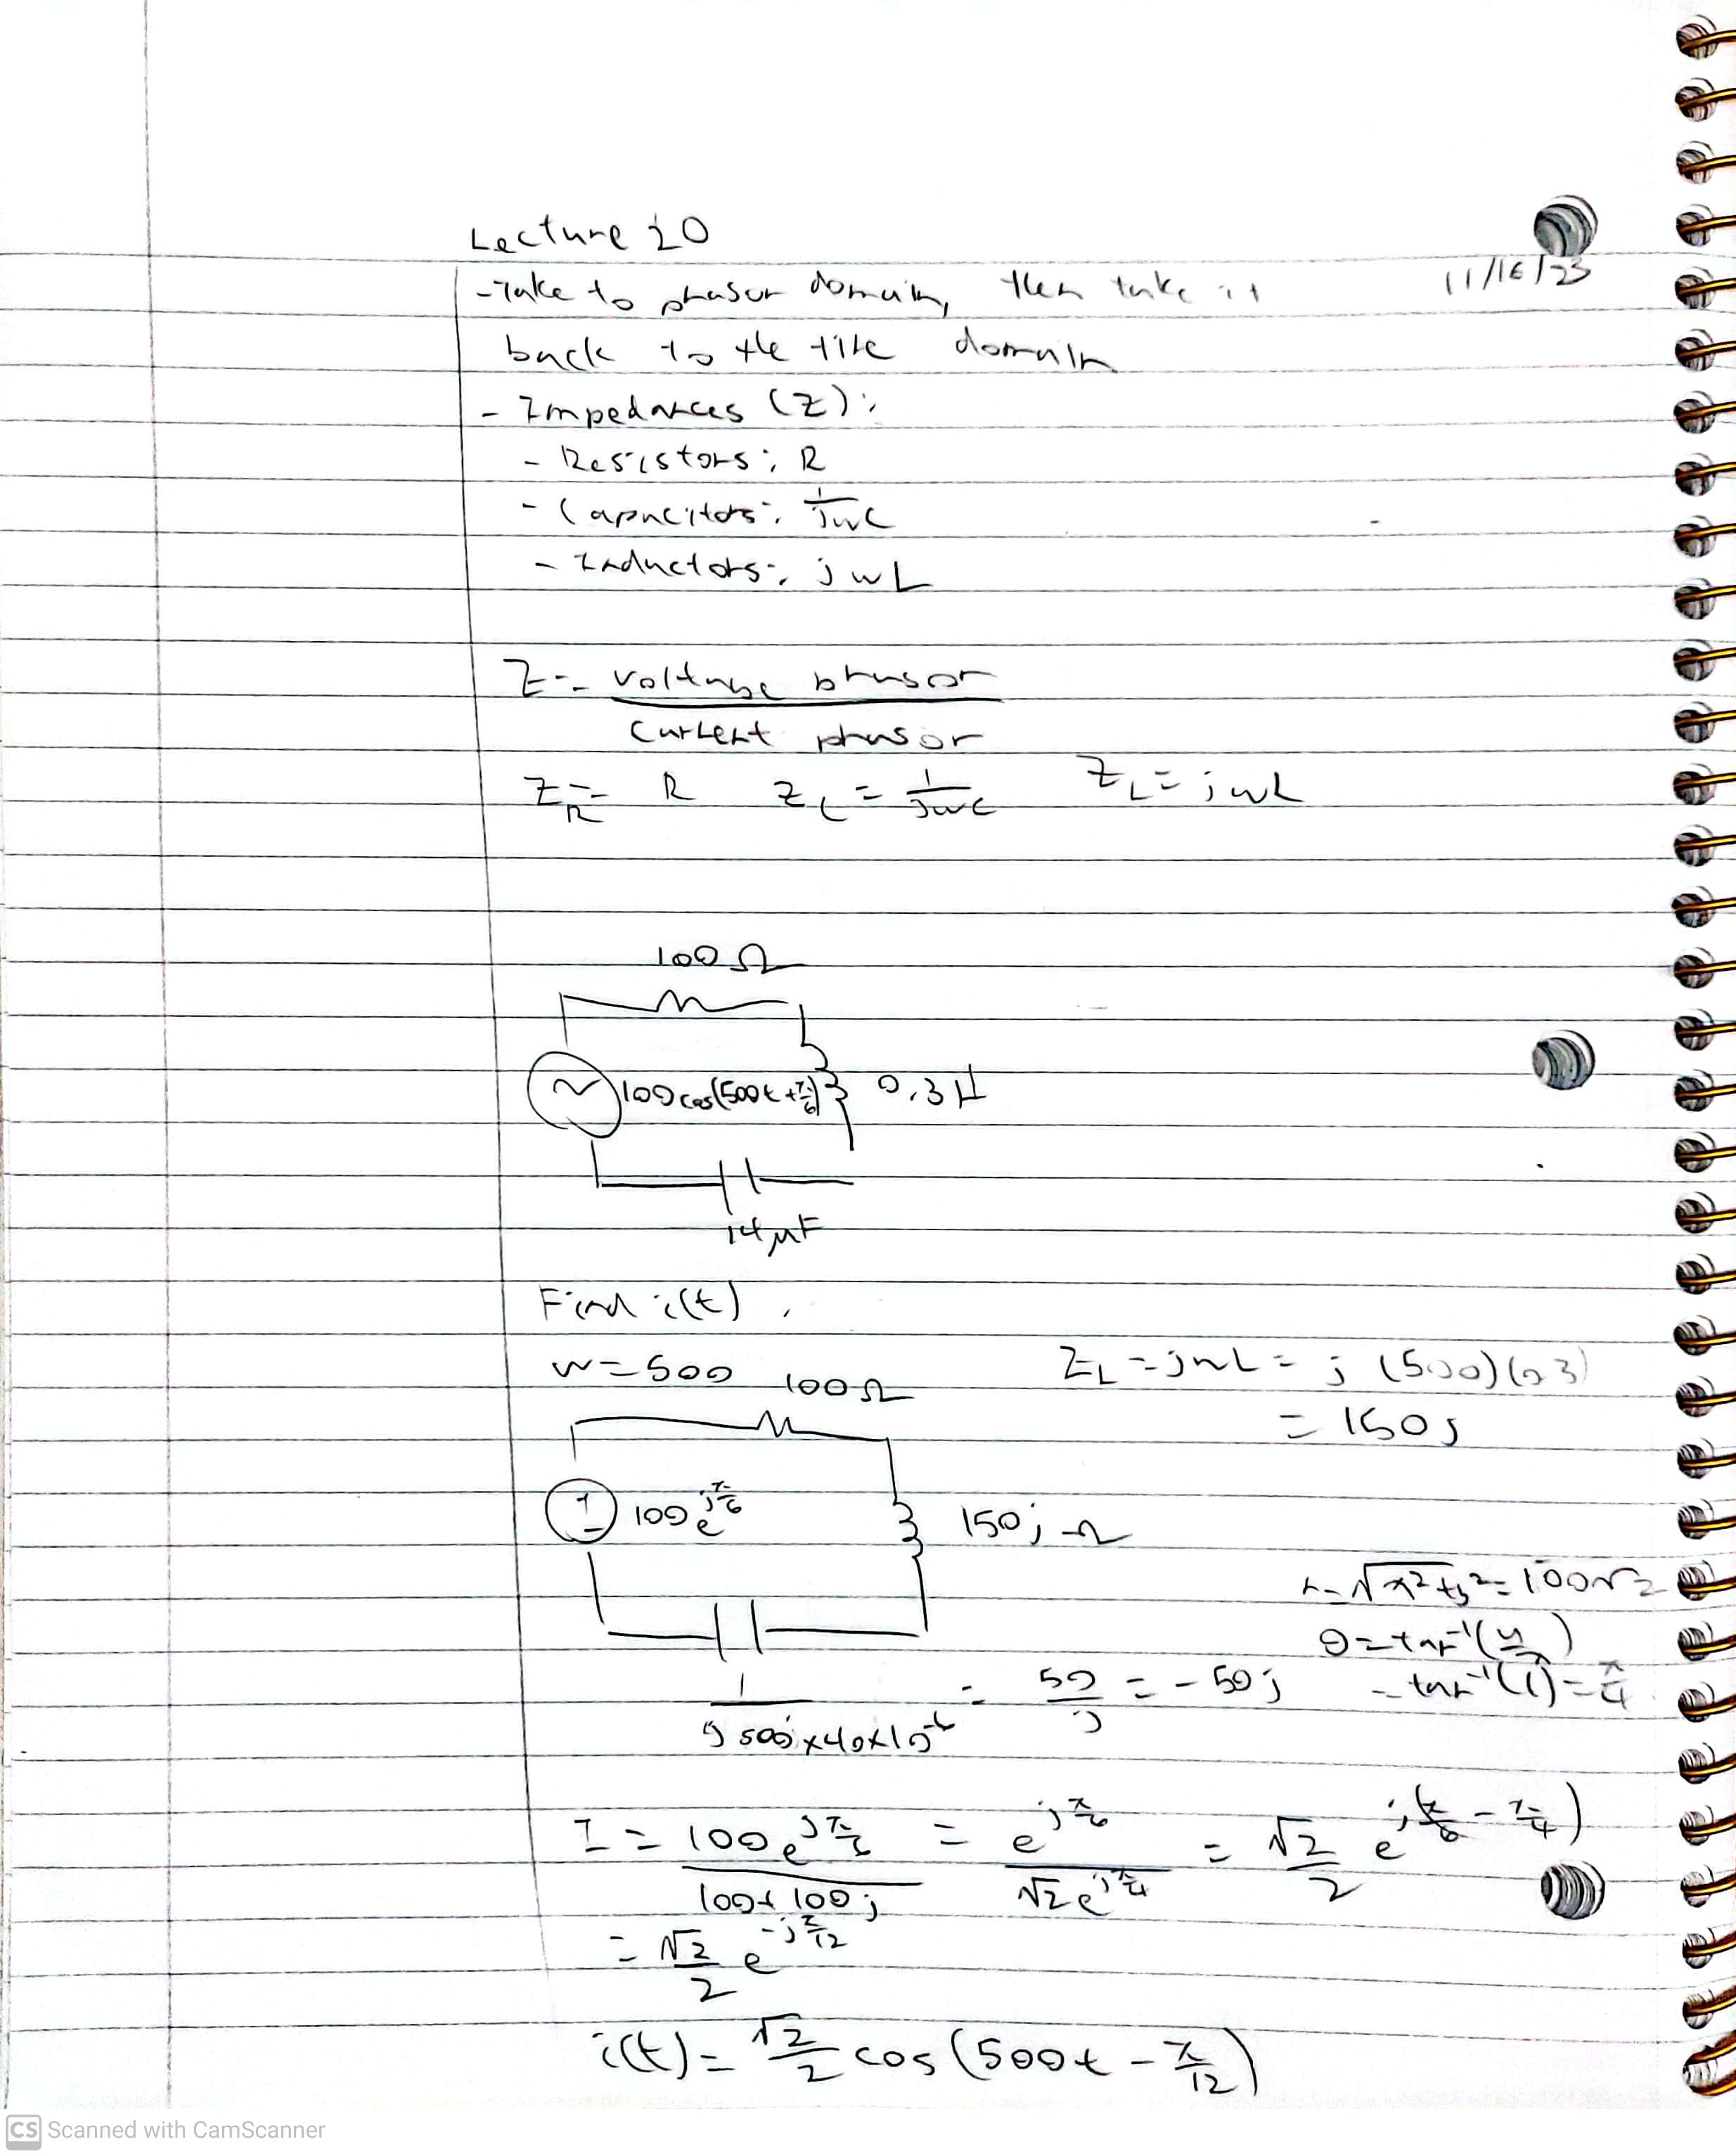 Lecture 20
11/16/23
- Take to phasor domain, then take it
back to the time domain
- Impedances (Z):
- Resistors: R
- Capacitors: 1/jwC
- Inductors: jwL
Z = voltage phasor / current phasor
Z_R = R   Z_C = 1/jwC   Z_L = jwL
100 Ω
100 cos(500t + π/6)   0.3 H
14 μF
Find i(t).
w = 500
Z_L = jwL = j(500)(0.3)
= 150j
100 Ω
100e^{jπ/6}   150j Ω
r = √(x² + y²) = 100√2
θ = tan⁻¹(y/x)
= tan⁻¹(1) = π/4
1/(j500×40×10⁻⁶) = 50/j = -50j
I = 100e^{jπ/6}/(100 + 100j) = e^{jπ/6}/(√2e^{jπ/4}) = √2/2 e^{j(π/6 - π/4)}
= √2/2 e^{-jπ/12}
i(t) = √2/2 cos(500t - π/12)
CS Scanned with CamScanner